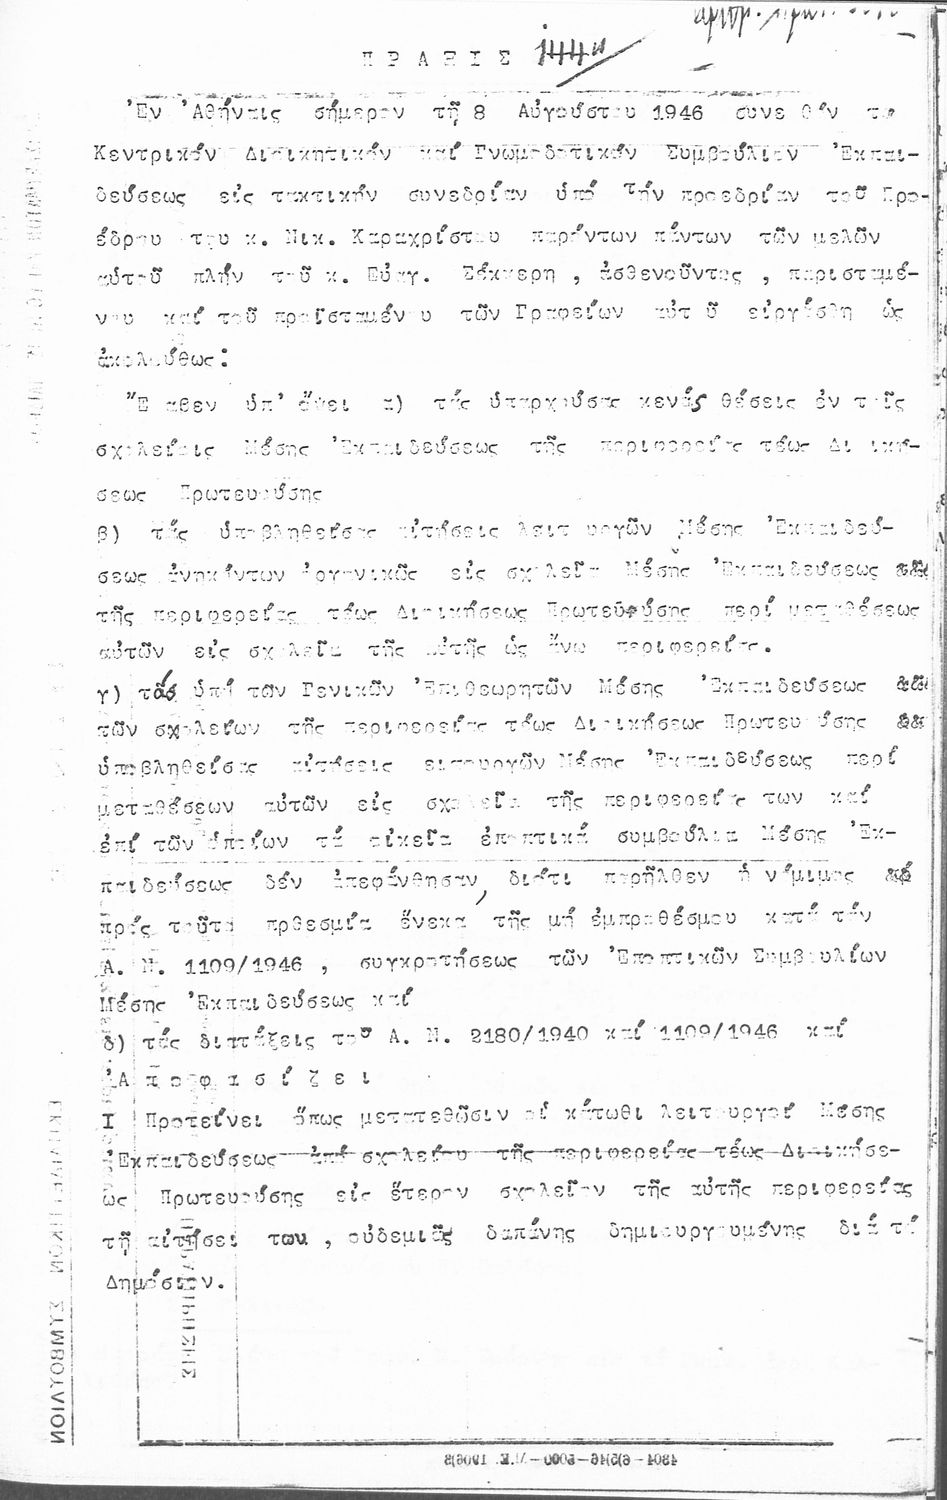 Π Ρ Α Ξ Ι Σ 144η
Ἐν Ἀθήναις σήμερον τῇ 8 Αὐγούστου 1946 συνελθόν το
Κεντρικόν Διοικητικόν καί Γνωμοδοτικόν Συμβούλιον Ἐκπαι-
δεύσεως εἰς τακτικήν συνεδρίαν ὑπό τήν προεδρίαν τοῦ Προ-
έδρου του κ. Νικ. Καραχρίστου παρόντων πάντων τῶν μελῶν
αὐτοῦ πλήν τοῦ κ. Εὐαγ. Σάκκερη , ἀσθενοῦντος , παρισταμέ-
νου καί τοῦ προϊσταμένου τῶν Γραφείων αὐτοῦ εἰργάσθη ὡς
ἀκολούθως:
Ἔλαβεν ὑπ' ὄψει α) τάς ὑπαρχούσας κενάς θέσεις ἐν τοῖς
σχολείοις Μέσης Ἐκπαιδεύσεως τῆς περιφερείας τέως Διοικη-
σεως Πρωτευούσης
β) τάς ὑποβληθείσας αἰτήσεις λειτουργῶν Μέσης Ἐκπαιδεύ-
σεως ἀνηκόντων ὀργανικῶς εἰς σχολεῖα Μέσης Ἐκπαιδεύσεως
τῆς περιφερείας τέως Διοικήσεως Πρωτευούσης περί μεταθέσεως
αὐτῶν εἰς σχολεῖα τῆς αὐτῆς ὡς ἄνω περιφερείας.
γ) τάς ὑπό τῶν Γενικῶν Ἐπιθεωρητῶν Μέσης Ἐκπαιδεύσεως
τῶν σχολείων τῆς περιφερείας τέως Διοικήσεως Πρωτευούσης
ὑποβληθείσας αἰτήσεις λειτουργῶν Μέσης Ἐκπαιδεύσεως περί
μεταθέσεων αὐτῶν εἰς σχολεῖα τῆς περιφερείας των καί
ἐπί τῶν ὁποίων τά οἰκεῖα ἐποπτικά συμβούλια Μέσης Ἐκ-
παιδεύσεως δέν ἀπεφάνθησαν, διότι παρῆλθεν ἡ νόμιμος
πρός τοῦτο προθεσμία ἕνεκα τῆς μή ἐμπροθέσμου κατά τόν
Α. Ν. 1109/1946 , συγκροτήσεως τῶν Ἐποπτικῶν Συμβουλίων
Μέσης Ἐκπαιδεύσεως καί
δ) τάς διατάξεις τοῦ Α. Ν. 2180/1940 καί 1109/1946 καί
Ἀ π ο φ α σ ί ζ ε ι
Ι Προτείνει ὅπως μετατεθῶσιν οἱ κάτωθι λειτουργοί Μέσης
Ἐκπαιδεύσεως ἀπό σχολείου τῆς περιφερείας τέως Διοικήσε-
ως Πρωτευούσης εἰς ἕτερον σχολεῖον τῆς αὐτῆς περιφερείας
τῇ αἰτήσει των , οὐδεμιᾶς δαπάνης δημιουργουμένης διά τό
Δημόσιον.